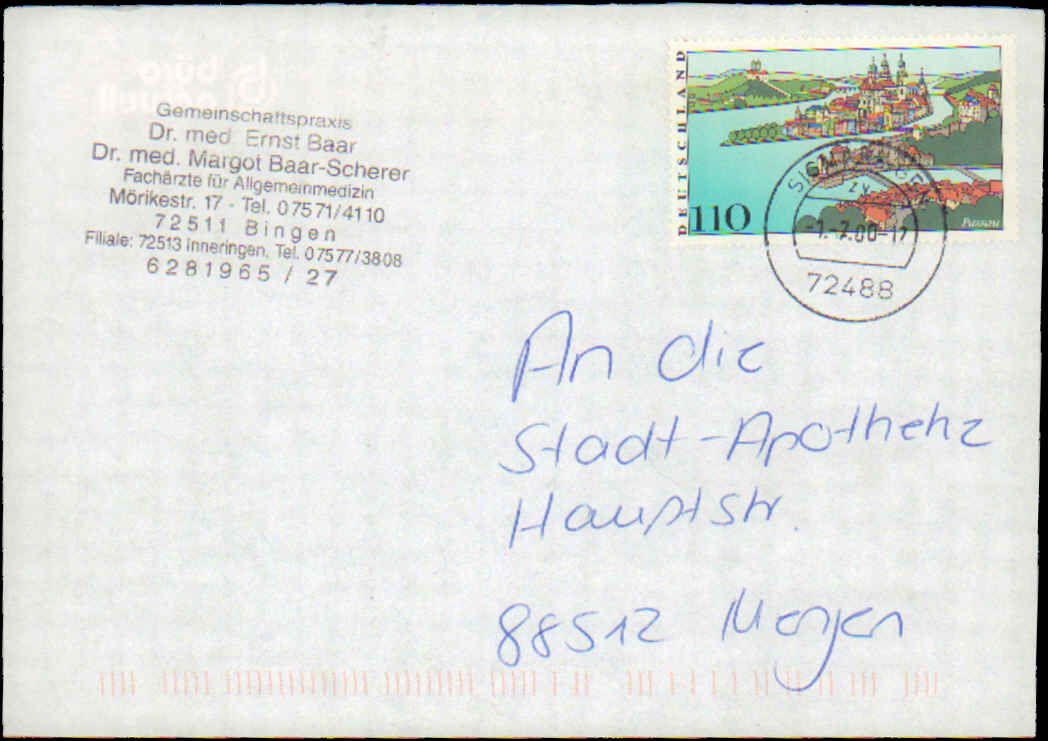 Gemeinschaftspraxis
Dr. med. Ernst Baar
Dr. med. Margot Baar-Scherer
Fachärzte für Allgemeinmedizin
Mörikestr. 17 - Tel. 07571/4110
72511 Bingen
Filiale: 72513 Inneringen, Tel. 07577/3808
6281965 / 27
DEUTSCHLAND
110
Passau
72488
An die
Stadt-Apotheke
Hauptstr.
88512 Mengen